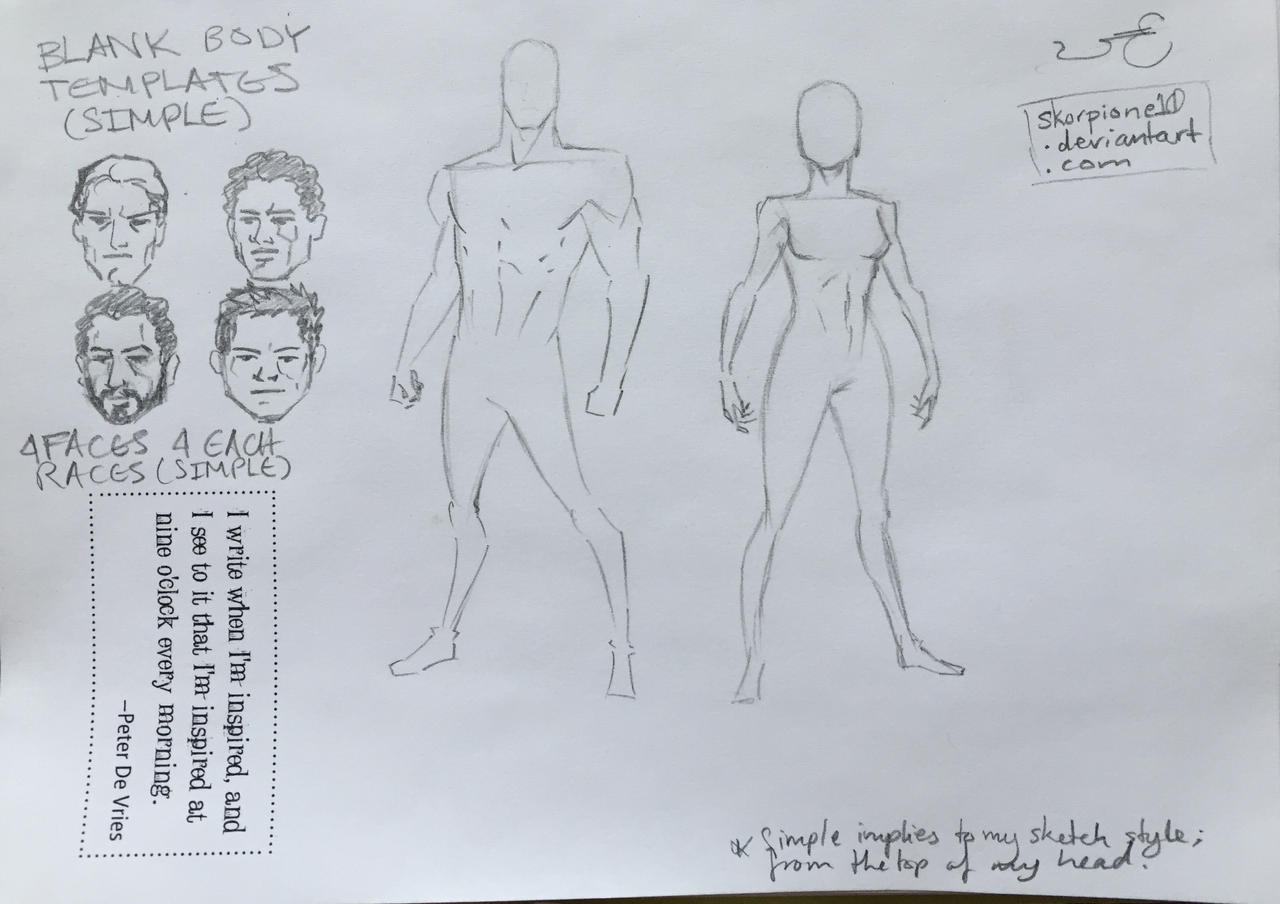 BLANK BODY
TEMPLATES
(SIMPLE)
skorpione10
.deviantart
.com
4 FACES 4 EACH
RACES (SIMPLE)
I write when I'm inspired, and
I see to it that I'm inspired at
nine o'clock every morning.
–Peter De Vries
* Simple implies to my sketch style;
from the top of my head.